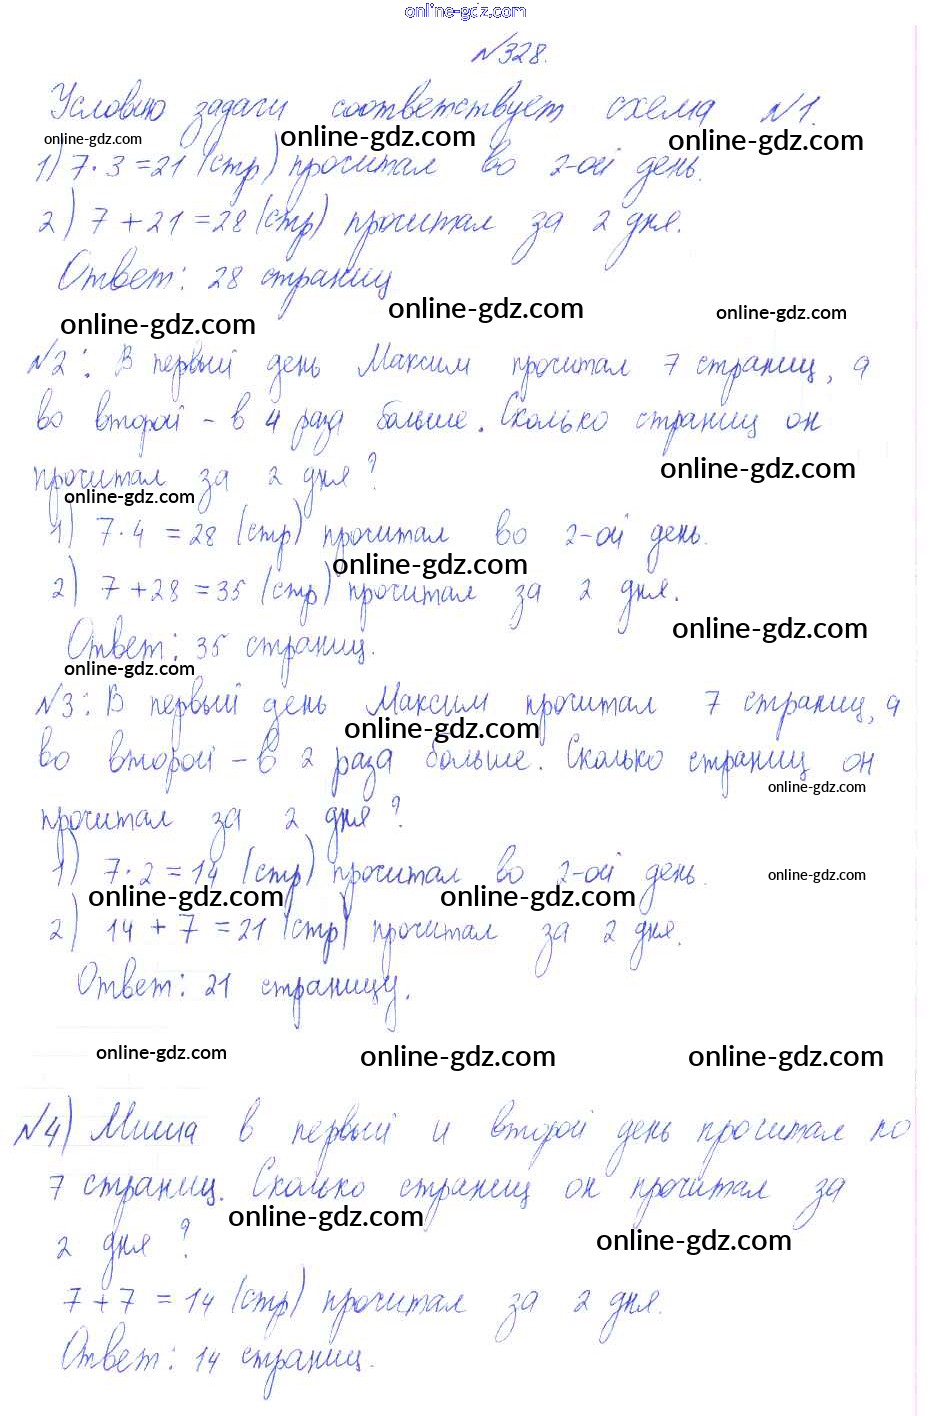 online-gdz.com
№328.
Условию задачи соответствует схема №1.
online-gdz.com online-gdz.com online-gdz.com
1) 7·3=21 (стр) прочитал во 2-ой день.
2) 7+21=28 (стр) прочитал за 2 дня.
Ответ: 28 страниц
online-gdz.com online-gdz.com online-gdz.com
№2: В первый день Максим прочитал 7 страниц, а
во второй - в 4 раза больше. Сколько страниц он
прочитал за 2 дня? online-gdz.com
online-gdz.com
1) 7·4=28 (стр) прочитал во 2-ой день.
online-gdz.com
2) 7+28=35 (стр) прочитал за 2 дня.
online-gdz.com
Ответ: 35 страниц.
online-gdz.com
№3: В первый день Максим прочитал 7 страниц, а
online-gdz.com
во второй - в 2 раза больше. Сколько страниц он
online-gdz.com
прочитал за 2 дня?
1) 7·2=14 (стр) прочитал во 2-ой день. online-gdz.com
online-gdz.com online-gdz.com
2) 14+7=21 (стр) прочитал за 2 дня.
Ответ: 21 страницу.
online-gdz.com online-gdz.com online-gdz.com
№4) Миша в первый и второй день прочитал по
7 страниц. Сколько страниц он прочитал за
online-gdz.com
2 дня? online-gdz.com
7+7=14 (стр) прочитал за 2 дня.
Ответ: 14 страниц.